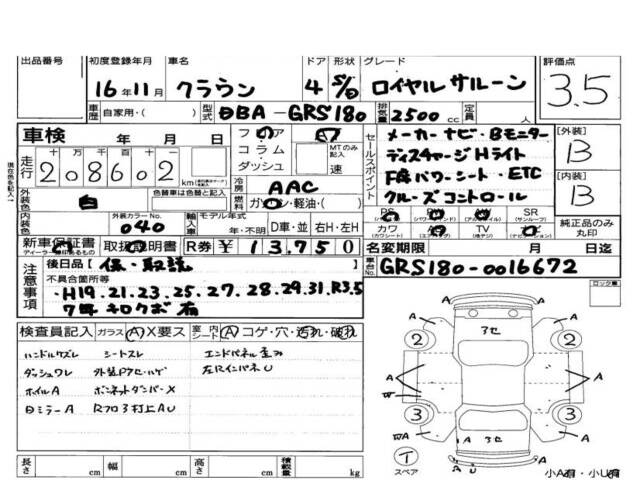 出品番号 初度登録年月 車名 ドア 形状 グレード 評価点
16年11月 クラウン 4 S/D ロイヤルサルーン 3.5
車歴 自家用・( ) 型式 DBA-GRS180 排気量 2500cc 定員 人
車検 年 月 日
走行 十万千百十 208602 km
シフト フロア コラム ダッシュ MTのみ記入 速
セールスポイント
メーカーナビ・Bモニター
ディスチャージHライト
F席パワーシート・ETC
クルーズコントロール
[外装] B
[内装] B
現在色を記入
外装色 白 色替車は色替と記入
冷房 AAC
燃料 ガソリン・軽油・( )
内装色 外装カラーNo. 040
輸入車 モデル年式 年・不明 D車・並 右H・左H
SR (サンルーフ)
カワ (カワシート) TV (地デジ)
純正品のみ丸印
新車保証書 取扱説明書 R券 ¥ 13,750
ディーラー捺印あるもの
名変期限 月 日迄
車台No. GRS180-0016672
注意事項
後日品【 保・取説 】
不具合箇所等
・H19.21.23.25.27.28.29.31.R3.5
7年キロクボ有
ロック車
検査員記入 ガラス A X要ス 室内 シート A コゲ・穴・汚れ・破れ
ハンドルスレ シートスレ エンドパネル歪み
ダッシュワレ 左RインパネU
ホイルA ボンネットダンパーX
日ミラーA Rフロア打上AU
2 3セ 2
A A
3 3
WA A 3セ A
T スペア
小A有・小U有
長さ cm 幅 cm 高さ cm 積載量 kg